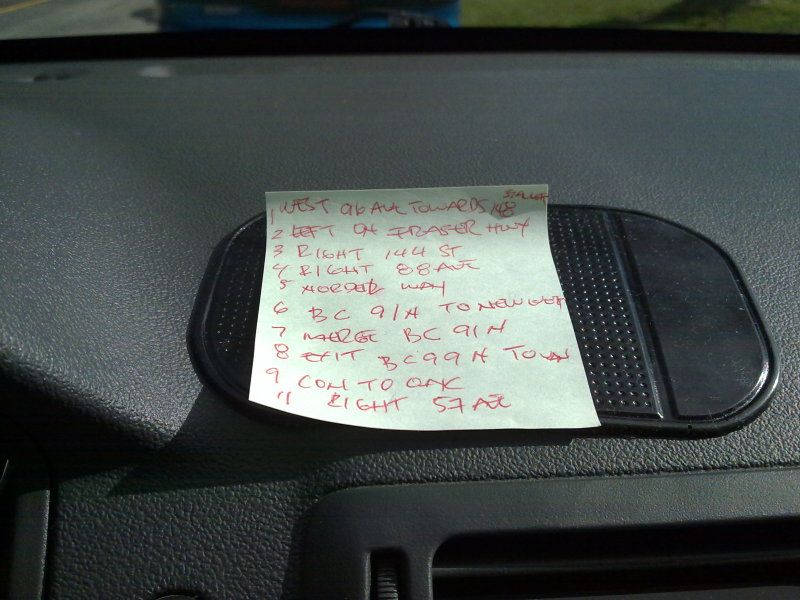 1 WEST 96 AVE TOWARDS 148
2 LEFT ON FRASER HWY
3 RIGHT 144 ST
4 RIGHT 88 AVE
5 WAY
6 BC 91A TO NEW
7 MERGE BC 91N
8 EXIT BC99N TO
9 CON TO OAK
11 RIGHT 57 AVE